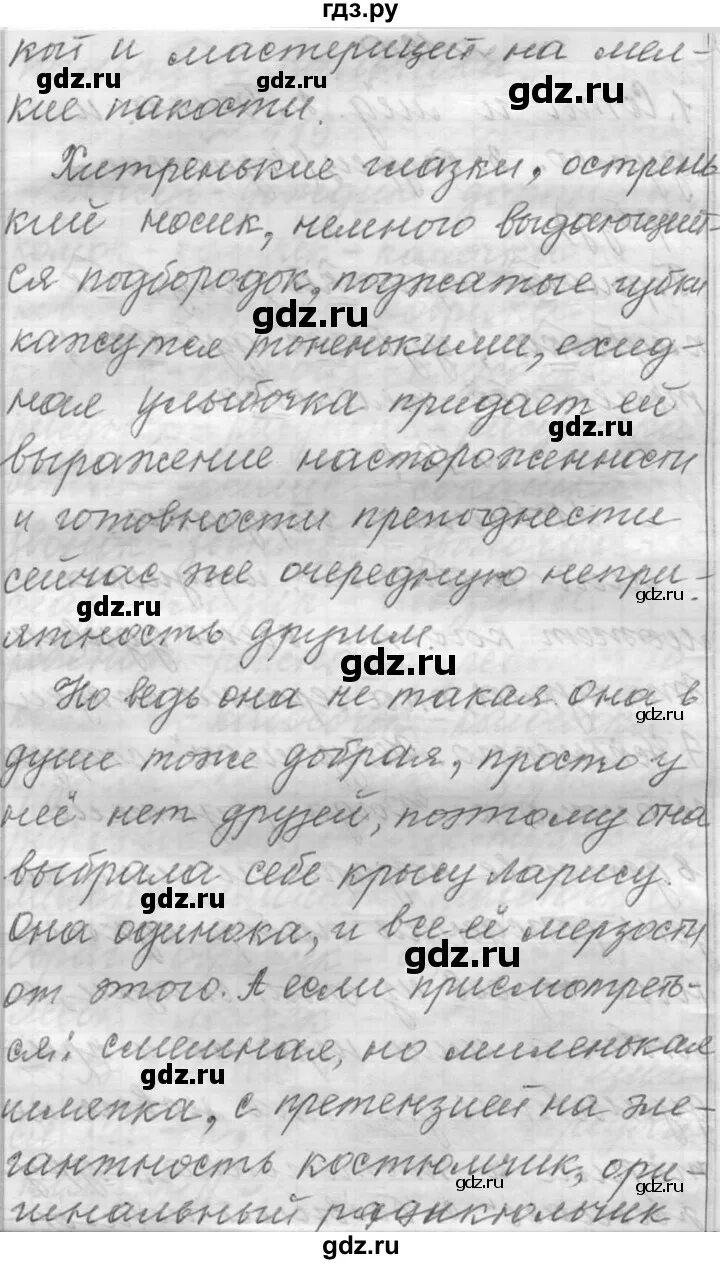 гдз.ру
кой и мастерицей на мел-
gdz.ru gdz.ru
кие пакости.
Хитренькие глазки, острень
кий носик, немного выдающий-
ся подбородок, поджатые губки
gdz.ru
кажутся тоненькими, ехид-
ная улыбочка придает ей
gdz.ru
выражение настороженности
и готовности преподнести
сейчас же очередную непри-
gdz.ru gdz.ru
ятность другим.
gdz.ru
Но ведь она не такая. Она в
gdz.ru
душе тоже добрая, просто у
неё нет друзей, поэтому она
выбрала себе крысу Ларису.
gdz.ru
Она одинока, и все её мерзости
gdz.ru
от этого. А если присмотреть-
ся: смешная, но миленькая
gdz.ru
шляпка, с претензией на эле-
гантность костюмчик, ори-
gdz.ru gdz.ru
гинальный ридикюльчик
gdz.ru